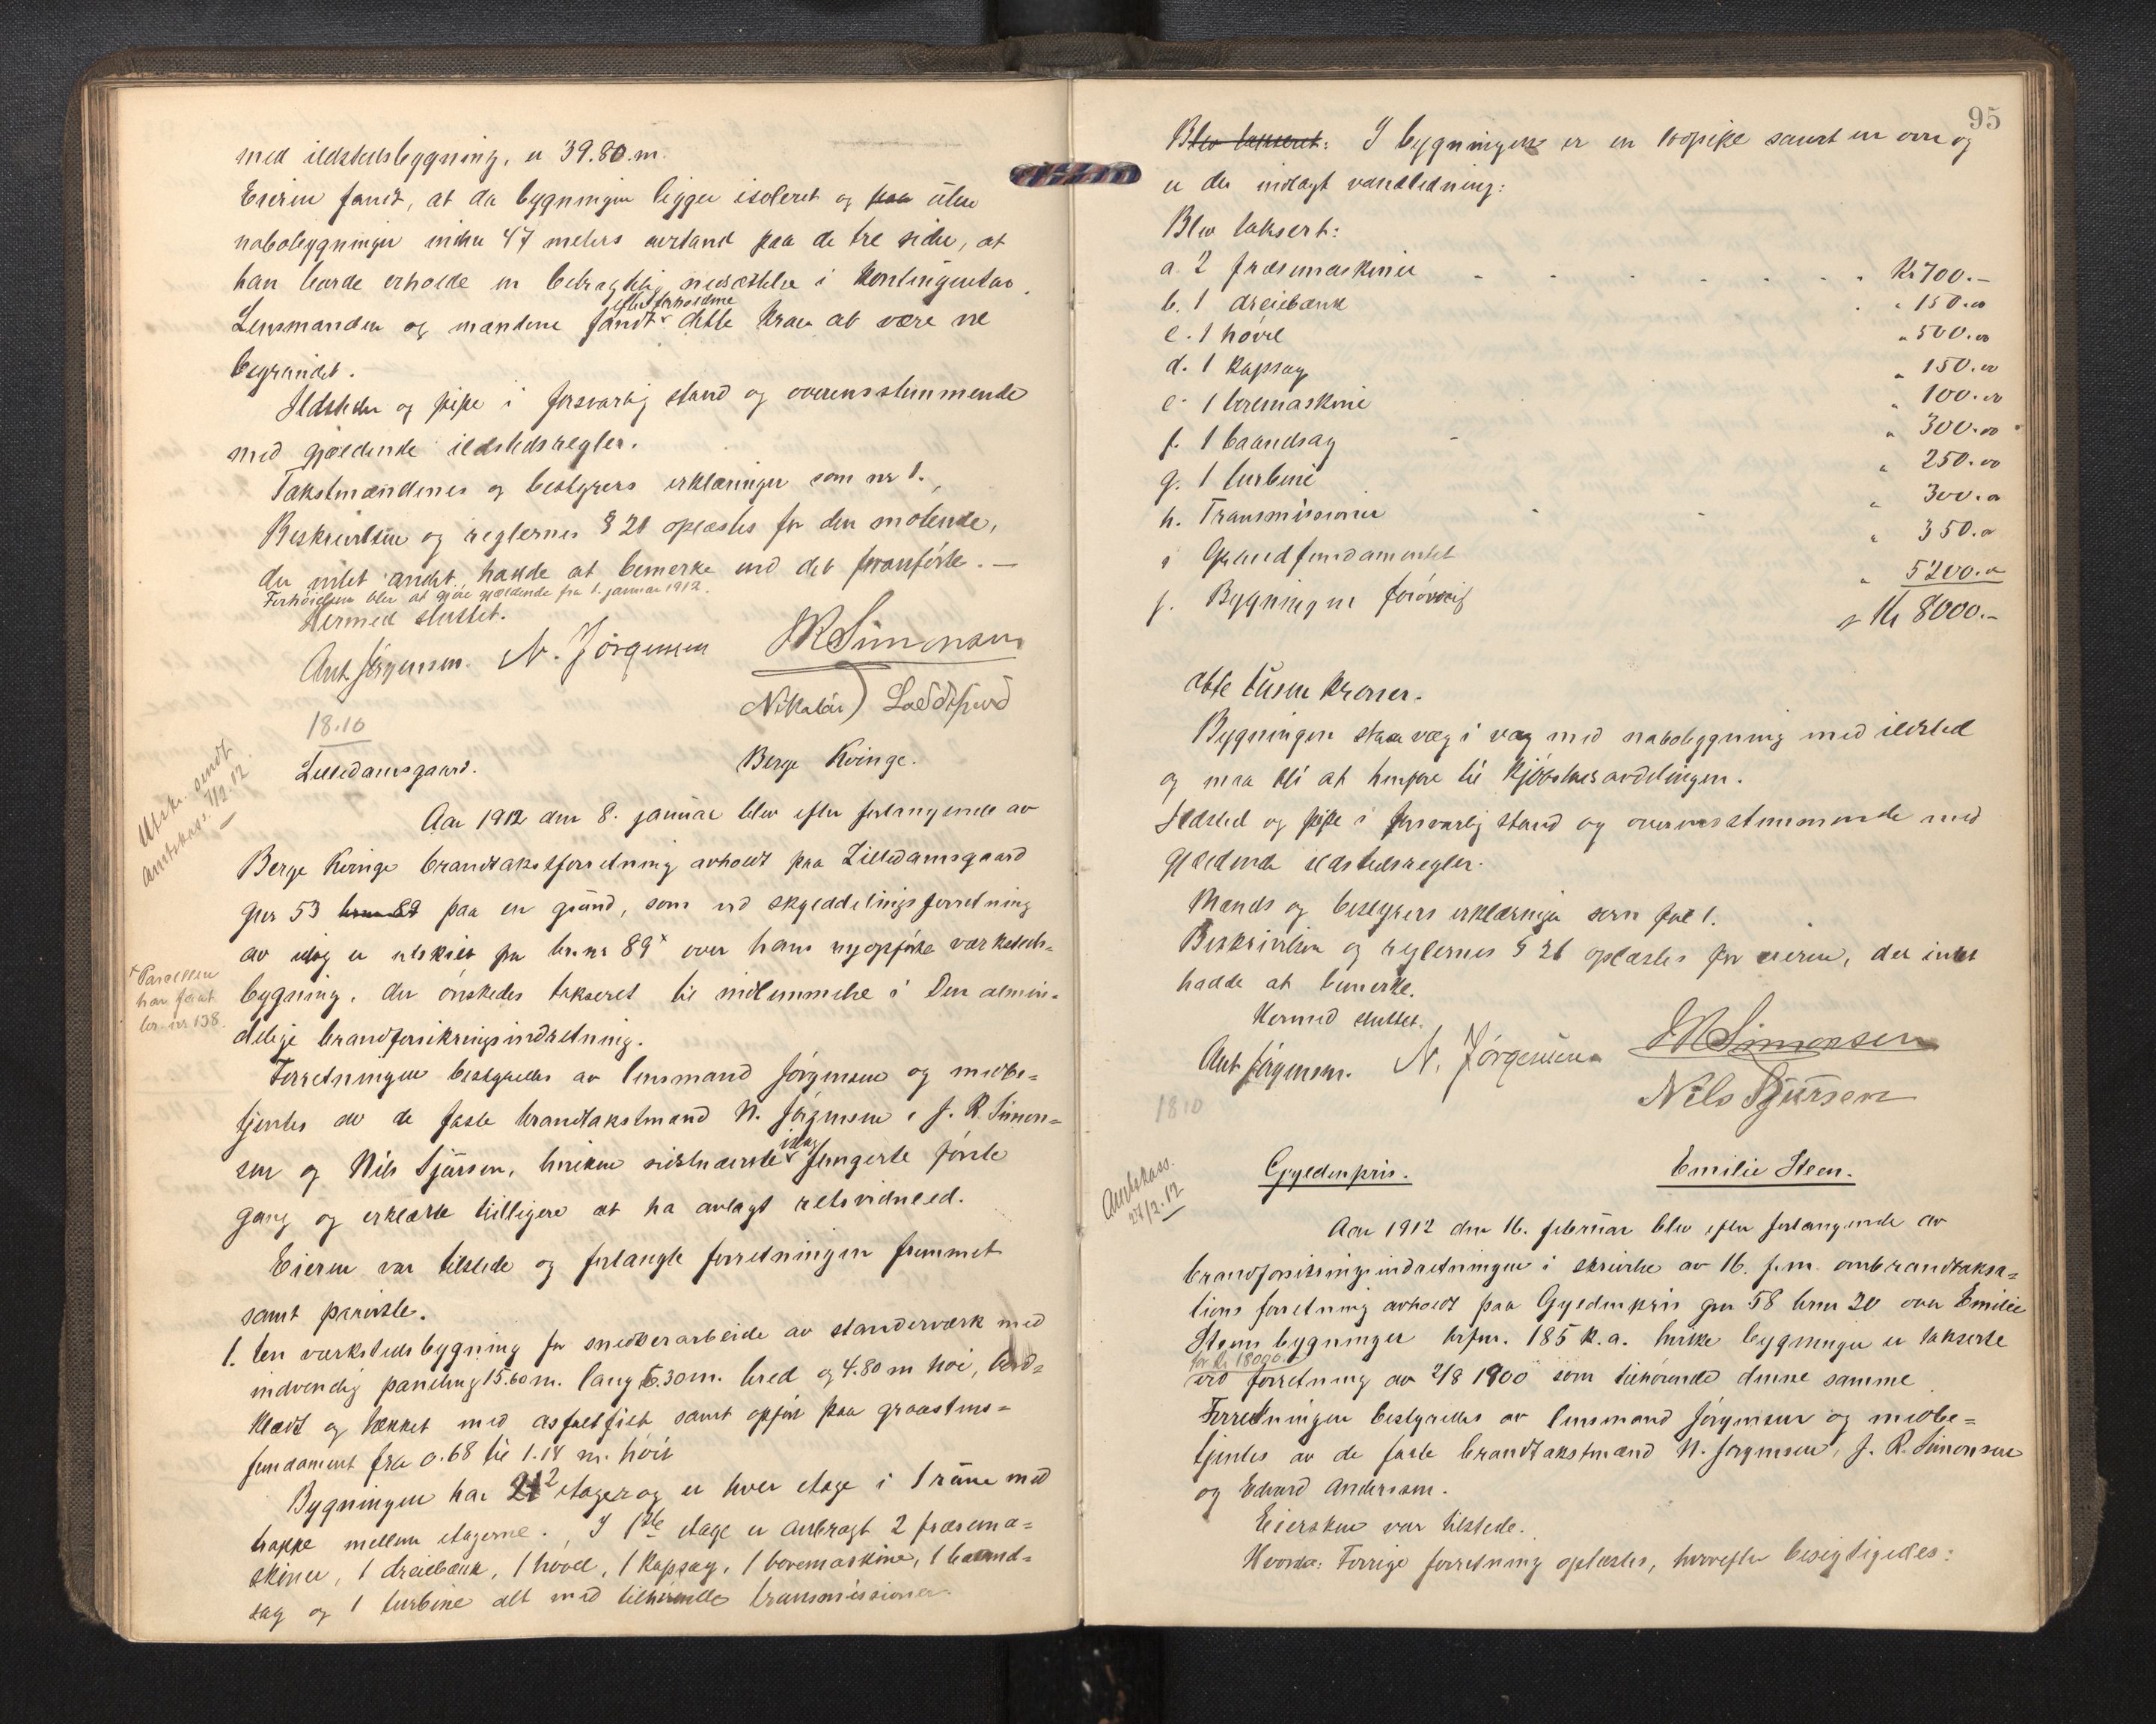 med ildstedsbygning, er 39.80.m.
Eieren fandt, at da bygningen ligger isoleret og paa uten
nabobygninger inden 47 meters avstand paa de tre sider, at
han burde erholde en betragtelig nedsættelse i Kontingentav.
efter forholdene
Lensmanden og mændene fandt dette krav at være vel
begrundet.
Ildsteder og pipe i forsvarlig stand og overensstemmende
med gjældende ildstedsregler.
Takstmændenes og bestyrers erklæringer som nr 1.
Beskrivelsen og reglernes § 21 oplæstes for den møtende,
der intet andet hadde at bemerke end det foranførte. —
Forhøielsen blir at gjøre gjældende fra 1. januar 1912.
Hermed sluttet.
Ant. Jørgensen. N. Jörgensen J R Simonsen
Nikolai Loddefjord
18.10
Utskr. sendt
amtskass. 7/2.12.
Lilledamsgaard. Berge Kvinge.
Aar 1912 den 8. januar blev efter forlangende av
Berge Kvinge brandtakstforretning avholdt paa Lilledamsgaard
gnr 53 brnr 89 paa en grund, som ved skylddelingsforretning
av idag er utskilt fra brnr 89 x over hans nyopførte værksteds=
x Parcellen
har faat
br.nr 138.
bygning, der ønskedes takseret til indlemmelse i Den almin=
delige brandforsikringsindretning.
Forretningen bestyredes av lensmand Jørgensen og medbe=
tjentes av de faste brandtakstmænd N. Jørgensen, J. R. Simon=
idag
sen og Nils Sjursen, hvilken sistnævnte fungerte første
gang og erklærte tilligere at ha avlagt retsvidneed.
Eieren var tilstede og forlangte forretningen fremmet
samt paaviste.
1. En værkstedsbygning for snedkerarbeide av standerværk med
indvendig paneling 15.60 m. lang 6.30 m. bred og 4.80 m høi, bord=
klædt og tækket med asfaltfilt samt opført paa graastens=
fundament fra 0.68 til 1.14 m. høit
Bygningen har 2 etager og er hver etage i 1 rum med
trappe mellem etagerne. I 1ste etage er anbragt 2 fræsema=
skiner, 1 dreiebænk, 1 høvel, 1 kapsag, 1 boremaskine, 1 baand=
sag og 1 turbine alt med tilhørende transmissioner.
95
Blev takseret: I bygningen er en pipe samt en ovn og
er der indlagt vandledning:
Blev taksert:
a. 2 fræsemaskiner Kr 700.–
b. 1 dreiebænk " 150.00
c. 1 høvel " 500.00
d. 1 kapsag " 150.00
e. 1 boremaskine " 100.00
f. 1 baandsag " 300.00
g. 1 turbine " 250.00
h. Transmissioner " 300.00
i Grundfundamentet " 350.00
j. Bygningen forøvrig " 5200.00
Kr 8000.–
otte tusen kroner.
Bygningen staar væg i væg med nabobygning med ildsted
og maa bli at henføre til kjøbstadsavdelingen.
Ildsted og pipe i forsvarlig stand og overensstemmende med
gjældende ildstedsregler.
Mænds og bestyrers erklæringer som fol 1.
Beskrivelsen og reglernes § 21 oplæstes for eieren, der intet
hadde at bemerke.
Hermed sluttet.
Ant Jørgensen. N. Jörgensen J R Simonsen
Nils Sjursen
1810
Amtskass.
27/2.12
Gyldenpris. Emilie Steen.
Aar 1912 den 16. februar blev efter forlangende av
brandforsikringsindretningen i skrivelse av 16. f.m. ombrandtaksa=
tions forretning avholdt paa Gyldenpris gnr 58 brnr 20 over Emilie
Steens bygninger brfnr. 185 k.a. hvilke bygninger er takserte
for kr 18090.
ved forretning av 2/8 1900 som tilhørende denne samme
Forretningen bestyredes av lensmand Jørgensen og medbe=
tjentes av de faste brandtakstmænd N. Jørgensen, J. R. Simonsen
og Edvard Andersen.
Eiersken var tilstede.
Hvorda: Forrige forretning oplæstes, hvorefter besigtigedes: